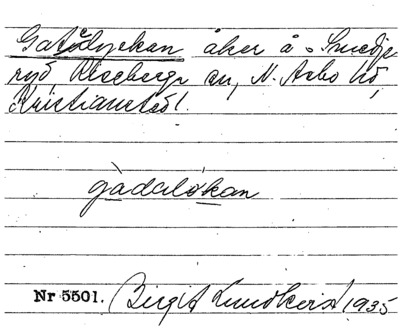 Gatolyckan åker å Smedje
ryd Riseberga sn, N. Åsbo hd,
Kristianstad l.
gàdalókan
Nr 5501. Birgit Lundkvist 1935